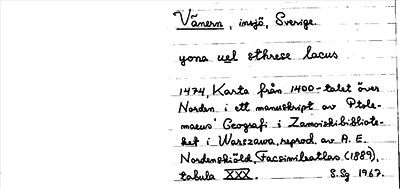 Vänern, insjö, Sverige.
yona uel sthrese lacus
1474, Karta från 1400-talet över
Norden i ett manuskript av Ptole-
maeus' Geografi i Zamoiskibibliote-
ket i Warszawa, reprod. av A. E.
Nordenskiöld, Facsimileatlas (1889),
tabula XXX. S.Sg 1967.